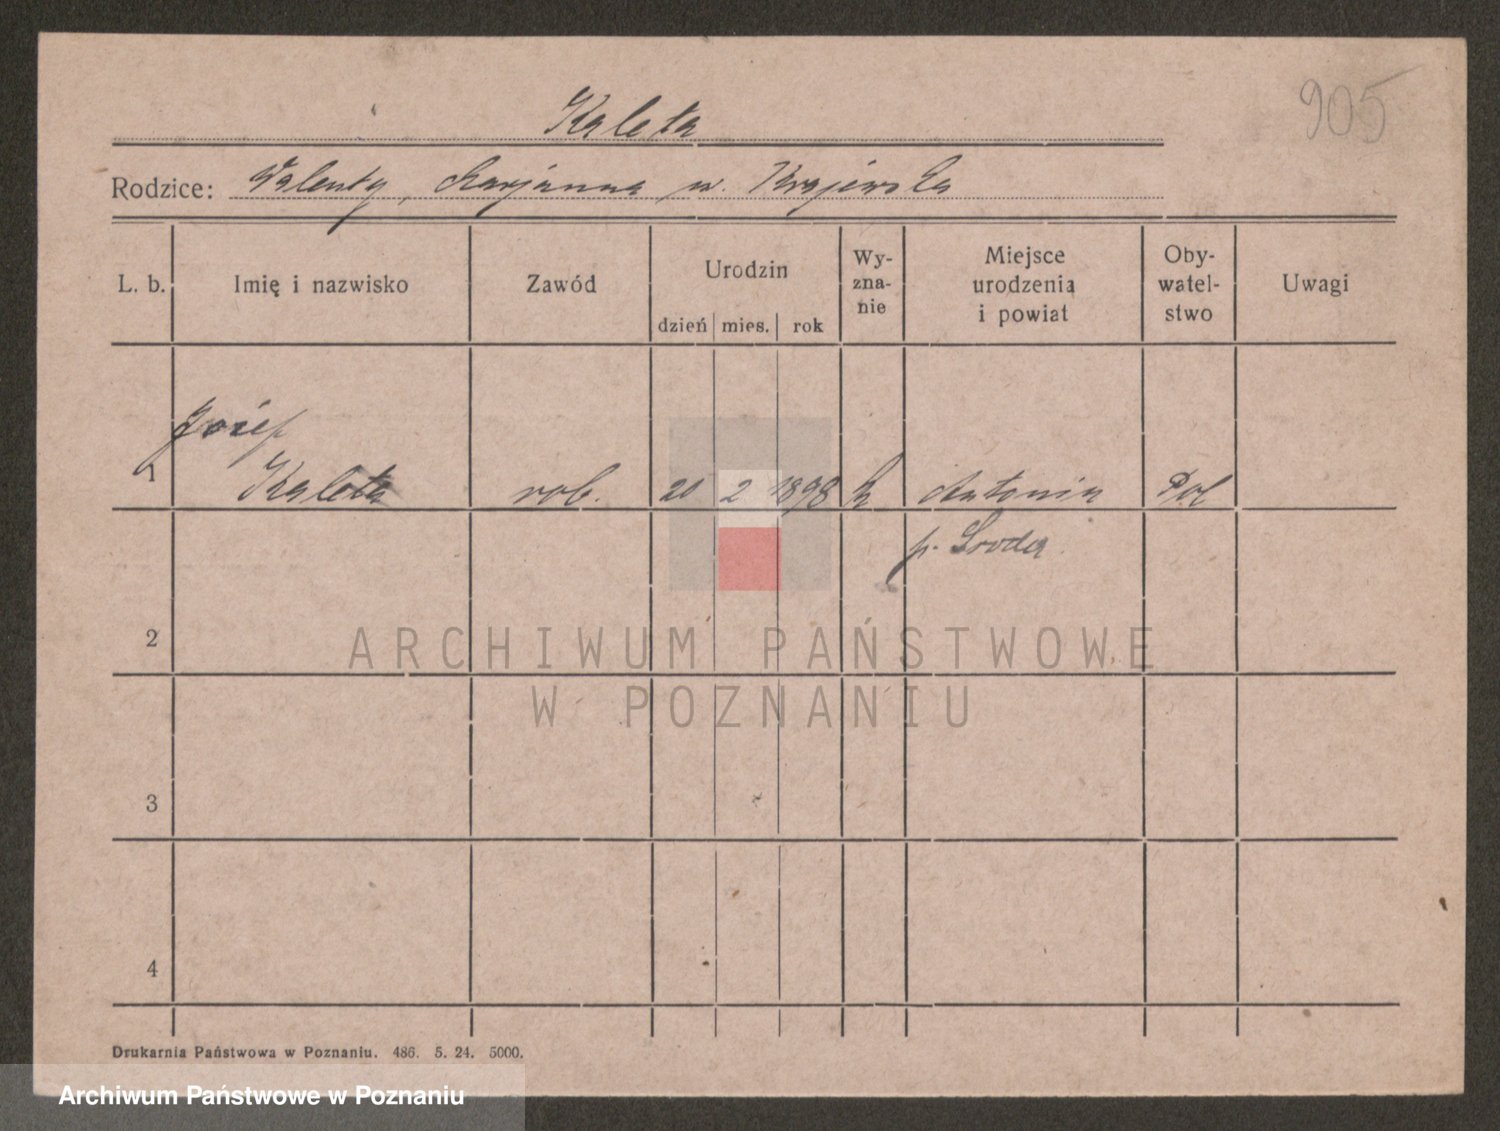 905
Kaleta
Rodzice: Walenty, Marjanna u. Krajewska
L. b. Imię i nazwisko Zawód Urodzin Wy- Miejsce Oby- Uwagi
zna- urodzenia watel-
nie i powiat stwo
dzień mies. rok
Józef
1 Kaleta rob. 20 2 1898 k Antonin Pol
p. Środa
2
ARCHIWUM PAŃSTWOWE
W POZNANIU
3
4
Drukarnia Państwowa w Poznaniu. 486. 5. 24. 5000.
Archiwum Państwowe w Poznaniu